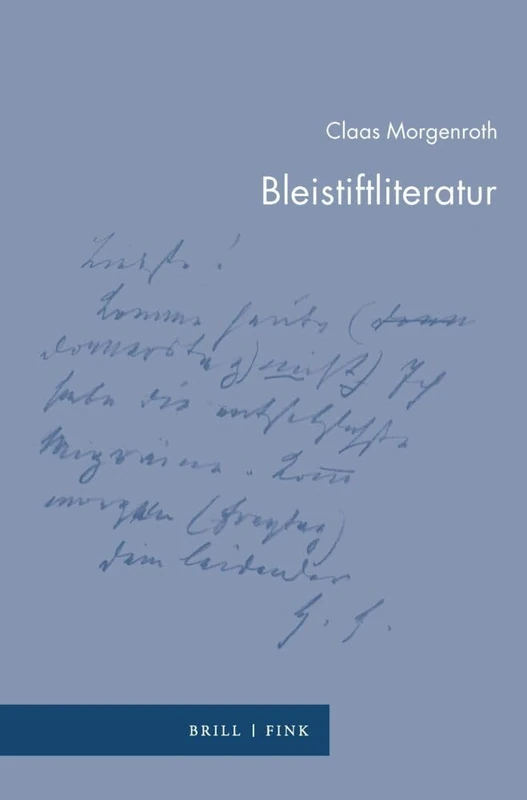 Claas Morgenroth
Bleistiftliteratur
Liebste!
Komme heute (
donnerstag) nicht) Ich
habe die entsetzlichste
Migraine. Komm
morgen (freytag)
dein leidender
BRILL | FINK